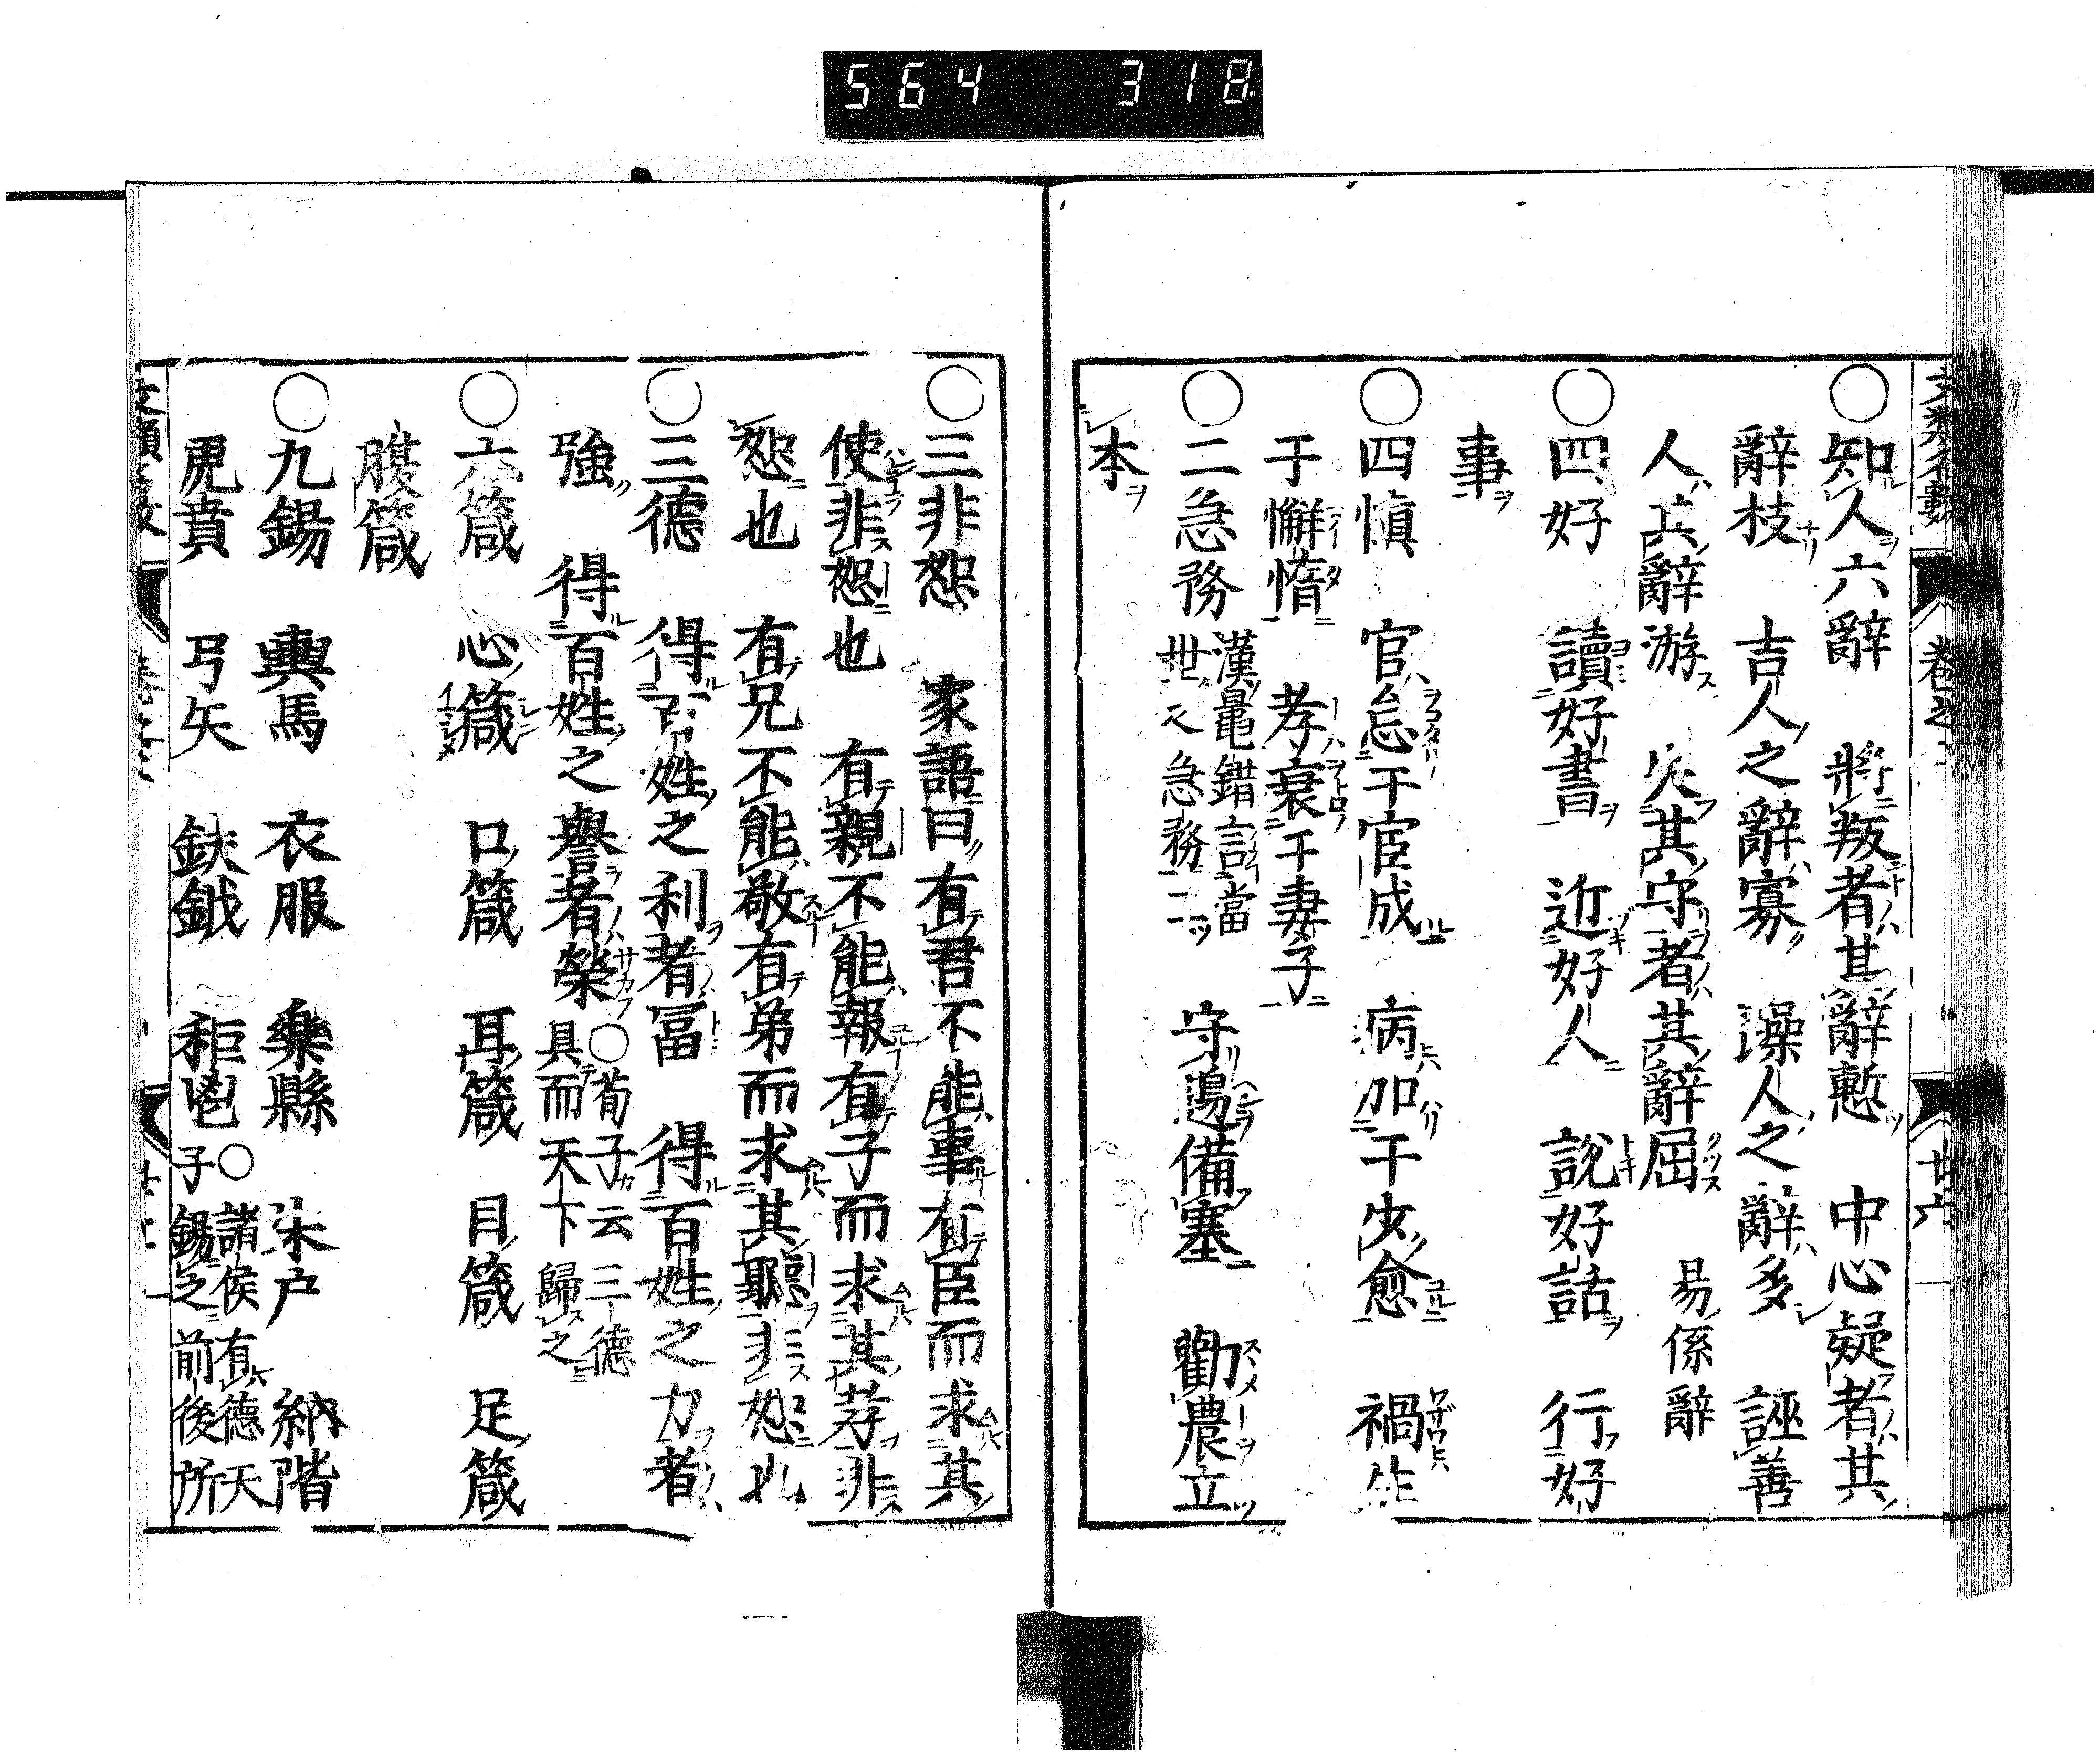 564 318
○知人六辭 將叛者其辭慙 中心疑者其
辭枝 吉人之辭寡 躁人之辭多 誣善
人其辭游 失其守者其辭屈 易係辭
○四好 讀好書 近好人 說好話 行好
事
○四慎 官怠于宦成 病加于少愈 禍生
于懈惰 孝衰于妻子
○二急務 漢鼂錯言當世之急務二 守邉備塞 勸農立
本
○三非恕 家語曰有君不能事有臣而求其
使非恕也 有親不能報有子而求其孝非
恕也 有兄不能敬有弟而求其聽非恕也
○三德 得百姓之利者冨 得百姓之力者
強 得百姓之譽者榮 ○荀子云三德具而天下歸之
○六箴 心箴 口箴 耳箴 目箴 足箴
腹箴
○九錫 輿馬 衣服 樂縣 朱户 納階
虎賁 弓矢 鈇鉞 秬鬯 ○諸侯有德天子錫之前後所